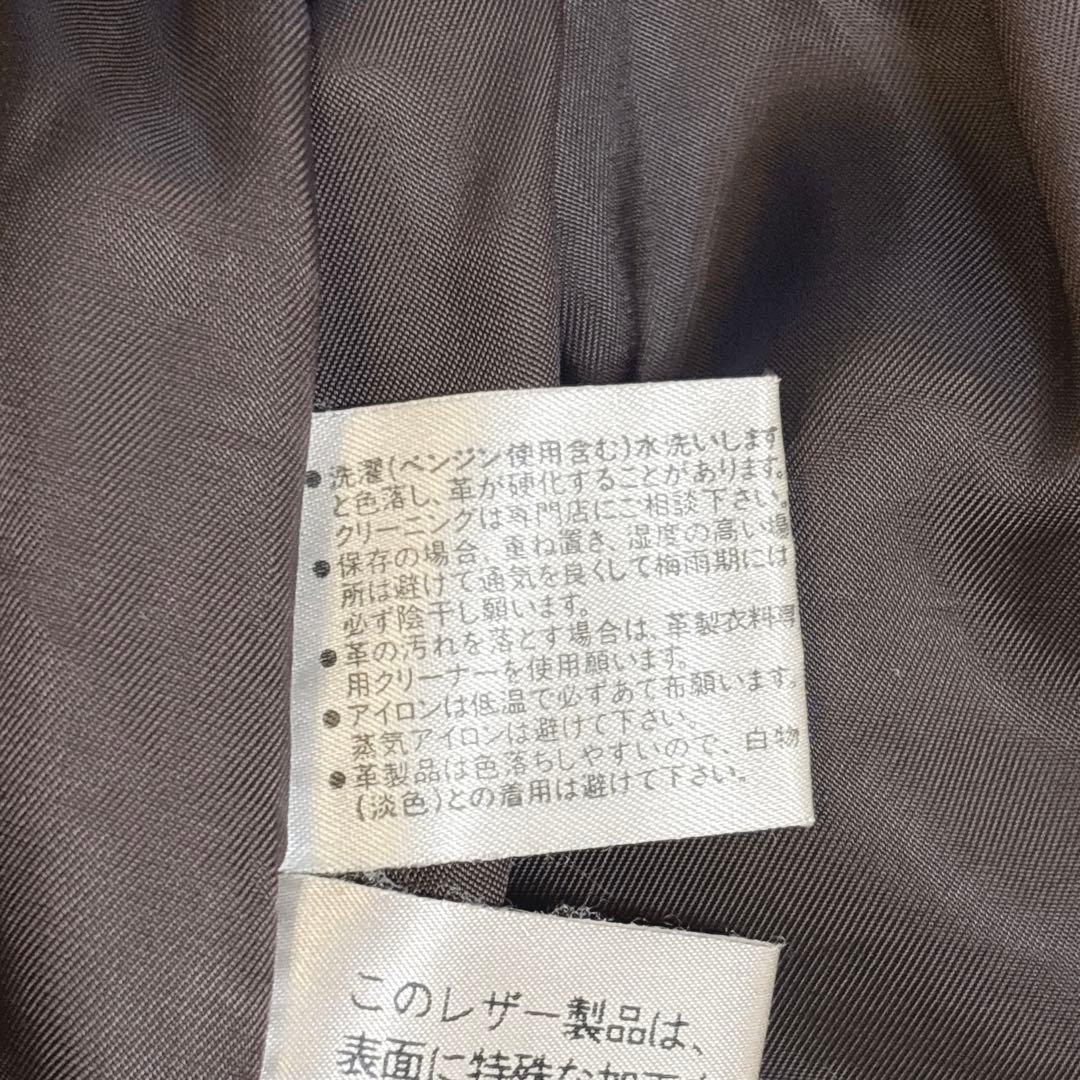 ●洗濯(ベンジン使用含む)水洗いします
と色落し、革が硬化することがあります。
クリーニングは専門店にご相談下さい。
●保存の場合、重ね置き、湿度の高い場
所は避けて通気を良くして梅雨期には
必ず陰干し願います。
●革の汚れを落とす場合は、革製衣料専
用クリーナーを使用願います。
●アイロンは低温で必ずあて布願います
蒸気アイロンは避けて下さい。
●革製品は色落ちしやすいので、白物
(淡色)との着用は避けて下さい。
このレザー製品は、
表面に特殊な加工